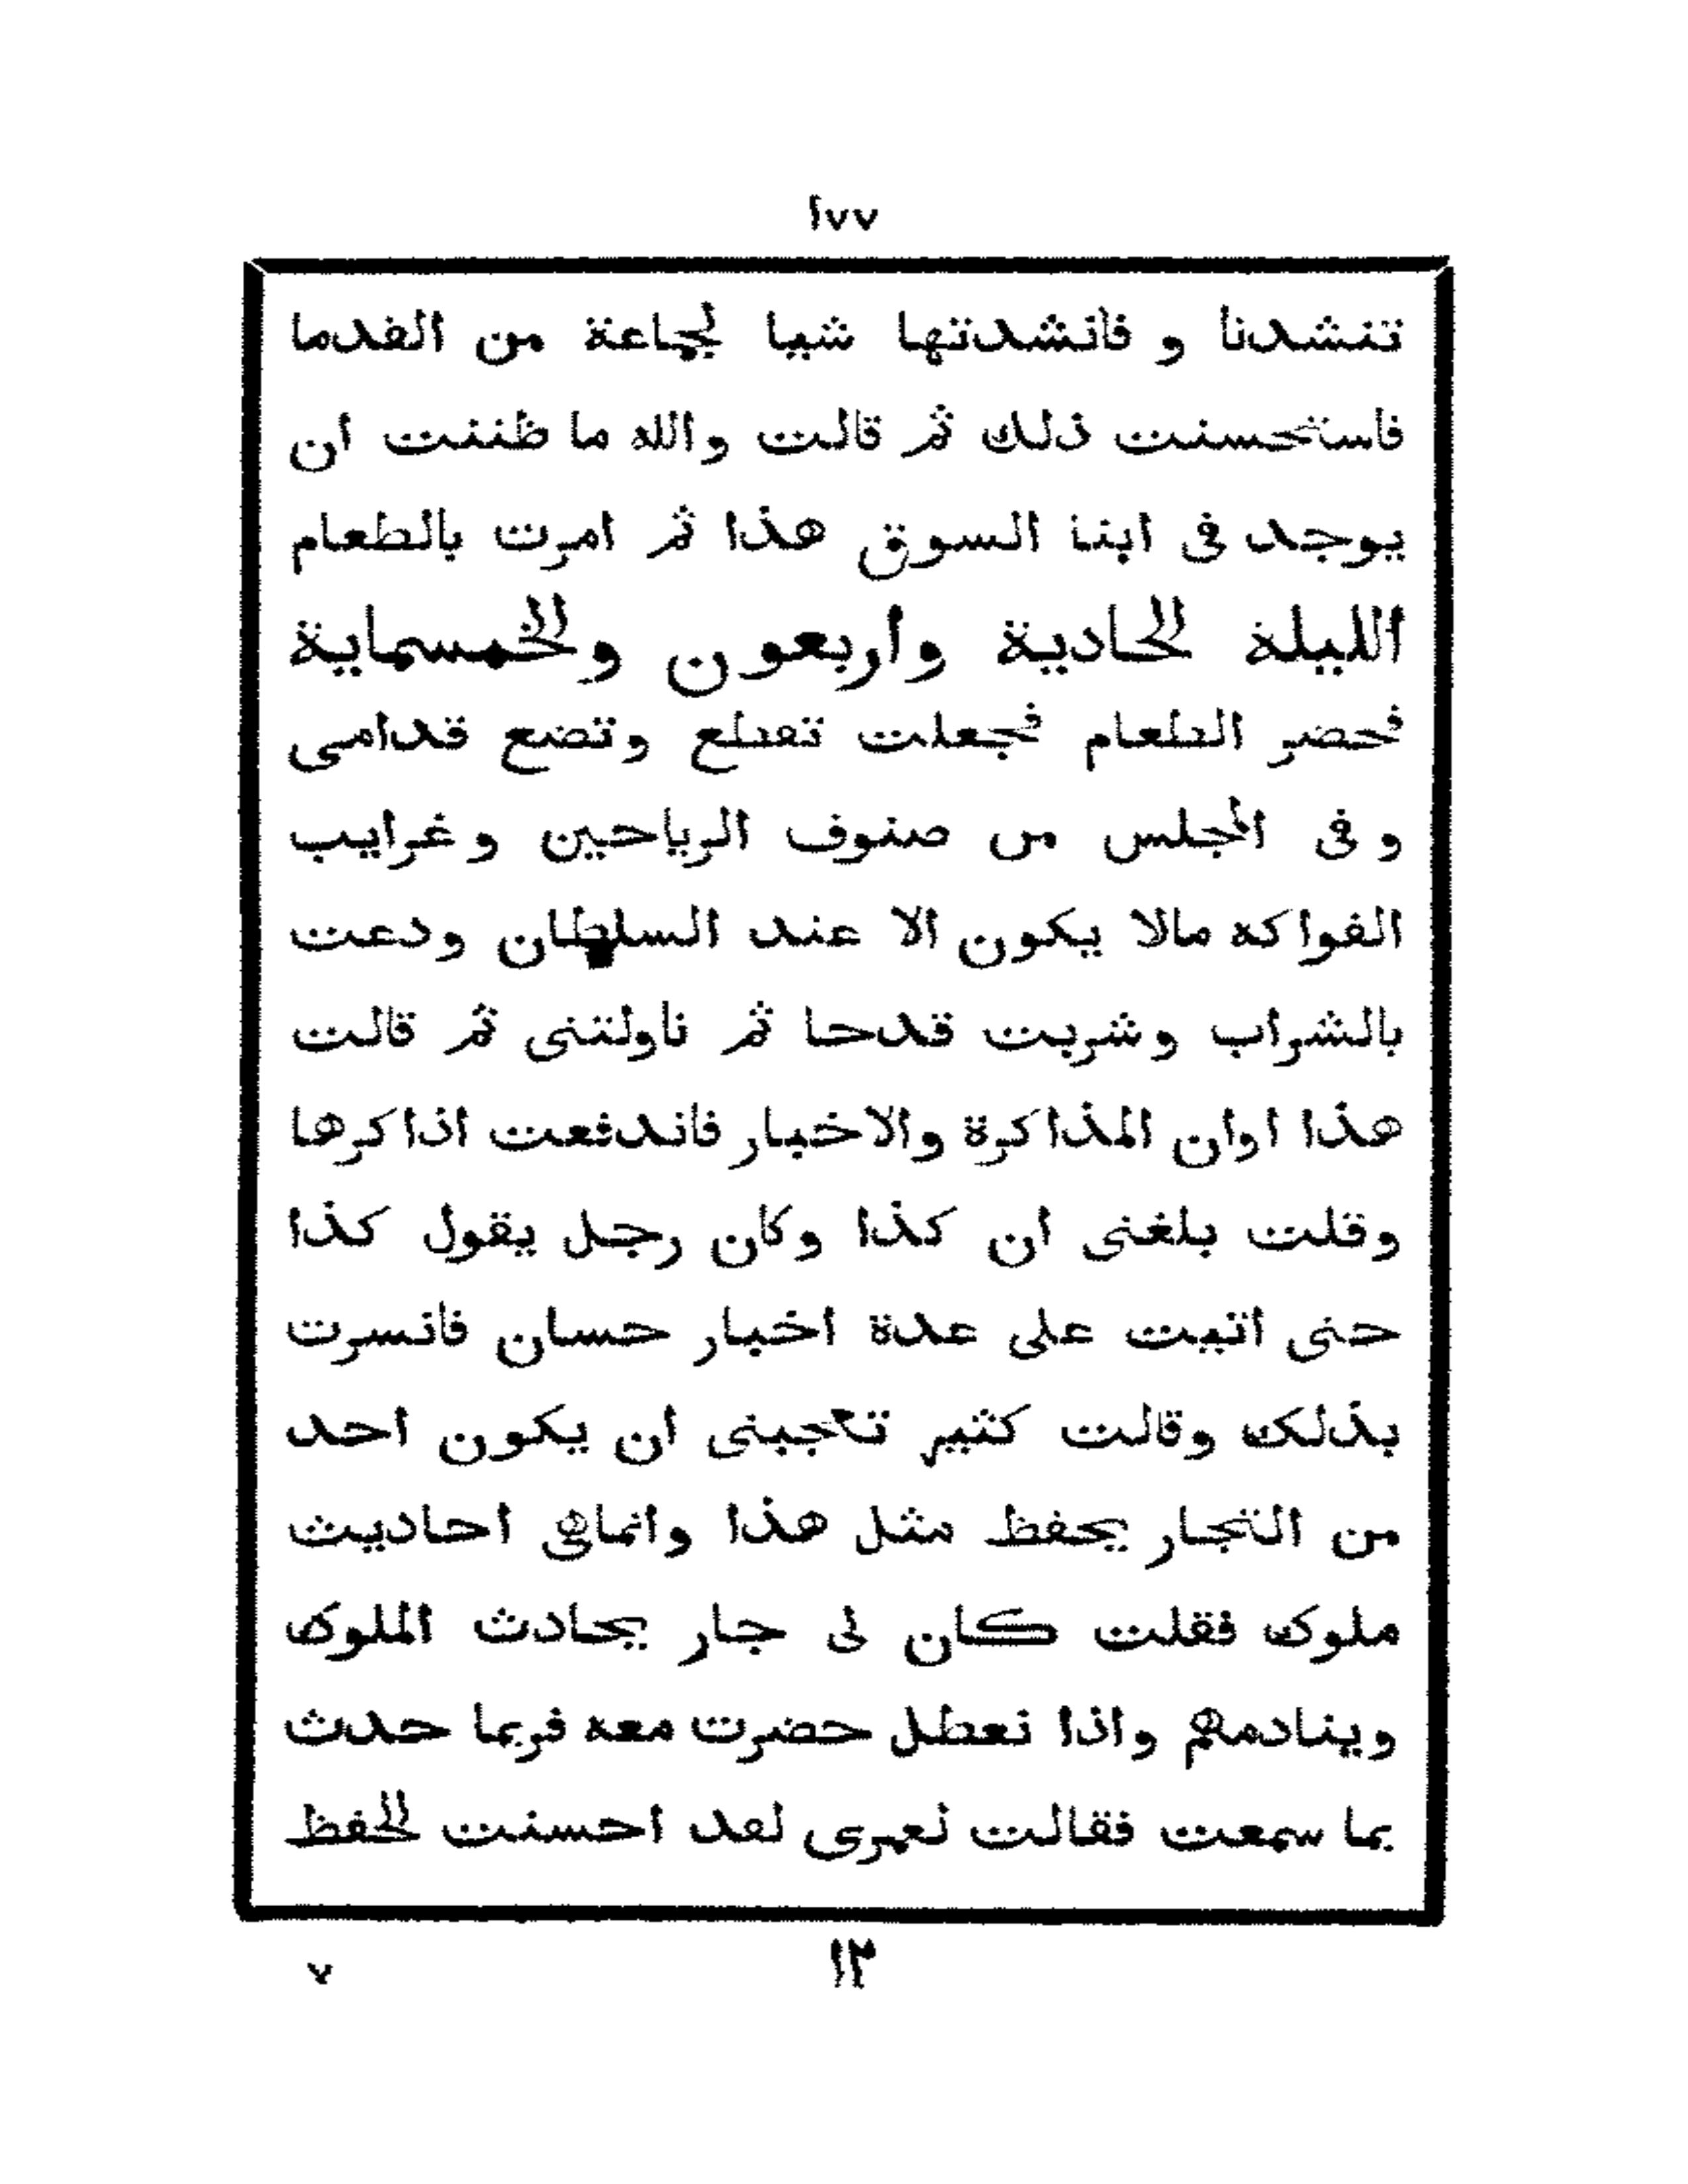 ١٧٧
تنشدنا و فانشدتها شيا لجماعة من القدما
فاستحسنت ذلك ثم قالت والله ما ظننت ان
يوجد فى ابنا السوق هذا ثم امرت بالطعام
الليلة الحادية واربعون والخمسماية
فحضر الطعام فجعلت تقطع وتضع قدامى
و فى المجلس من صنوف الرياحين و غرايب
الفواكه مالا يكون الا عند السلطان ودعت
بالشراب وشربت قدحا ثم ناولتنى ثم قالت
هذا اوان المذاكرة والاخبار فاندفعت اذاكرها
وقلت بلغنى ان كذا وكان رجل يقول كذا
حتى اتيت على عدة اخبار حسان فانسرت
بذلك وقالت كثير تعجبنى ان يكون احد
من التجار يحفظ مثل هذا وانماهى احاديث
ملوك فقلت كان لى جار يحادث الملوك
وينادمهم واذا تعطل حضرت معه فربما حدث
بما سمعت فقالت لعمرى لقد احسنت الحفظ
١٢
٧